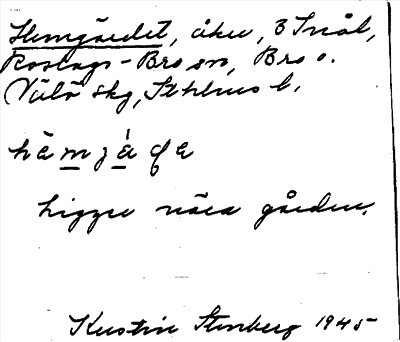 Hemgärdet, åker, 3 Snål,
Roslags-Bro sn, Bro o.
Välö skg, Sthlms l.
hè m j à
ligger nära gården.
Kerstin Stenberg 1945